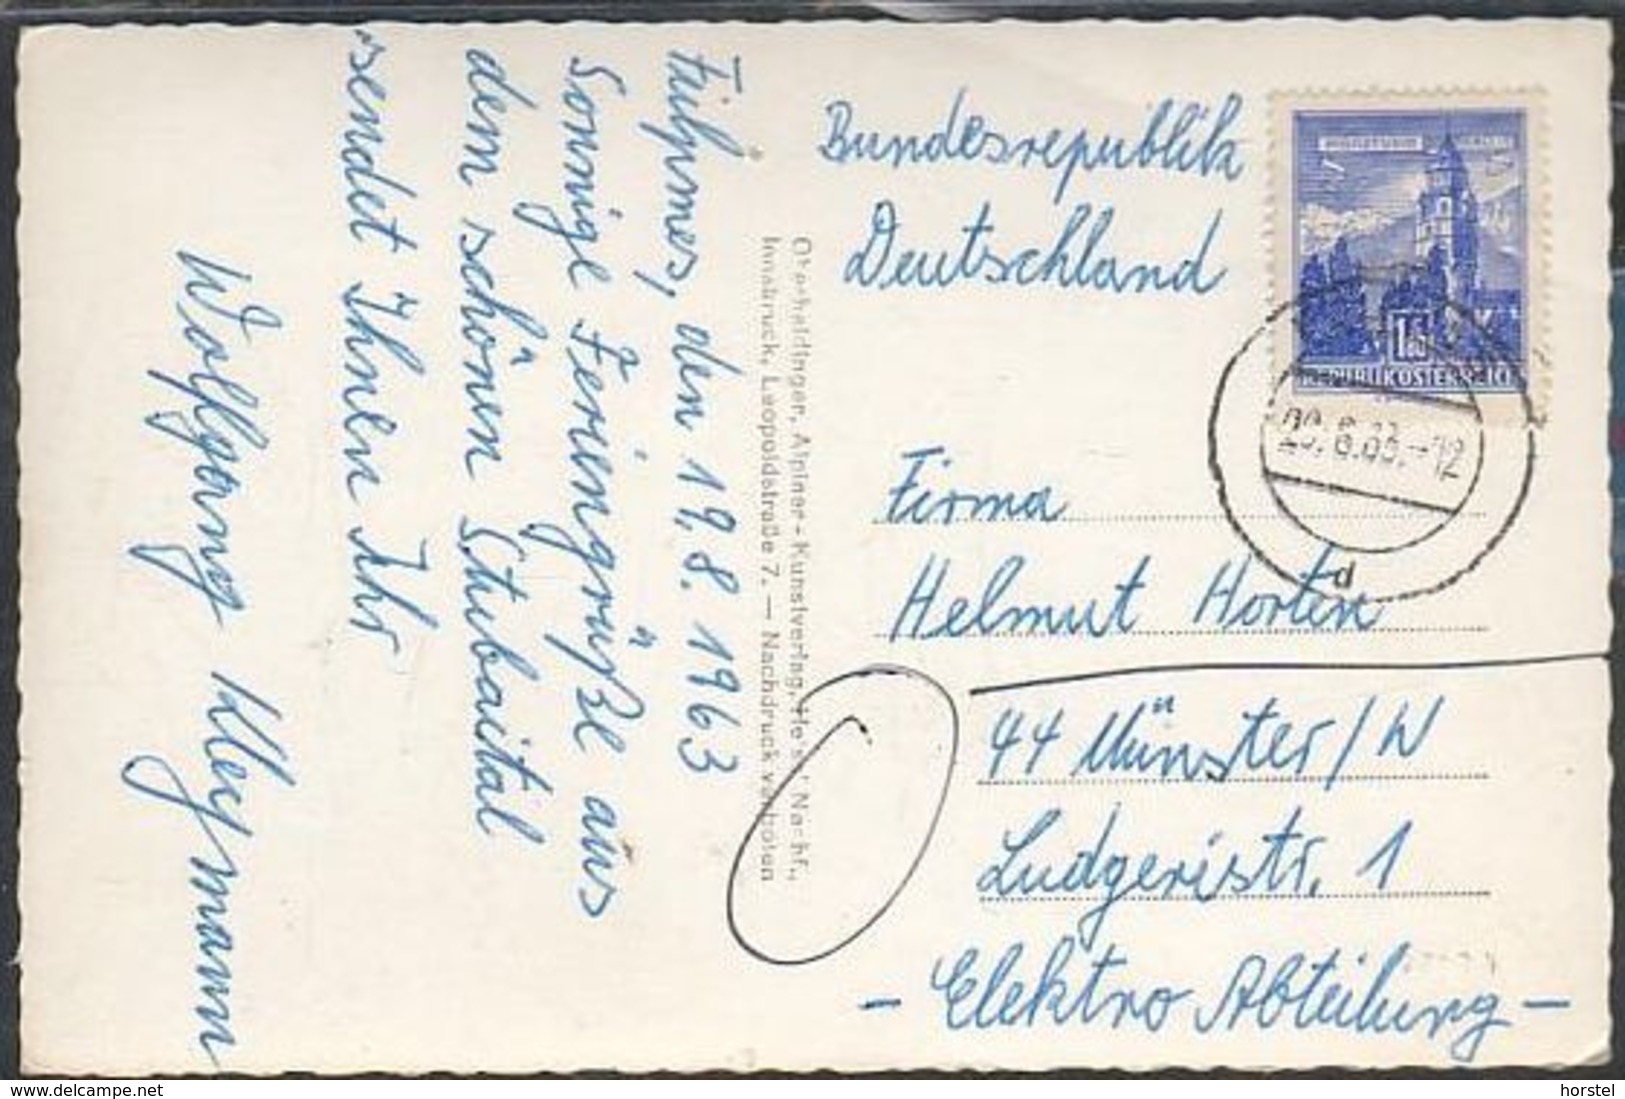 Fulpmes, den 19.8.1963
Sonnige Feriengrüße aus
dem schönen Stubaital
sendet Ihnen Ihr
Wolfgang
Alpiner-Kunstverlag,
Innsbruck, Leopoldstraße 7. — Nachdruck verboten
Bundesrepublik
Deutschland
REPUBLIK ÖSTERREICH
d
Firma
Helmut Horten
44 Münster/W
Ludgeristr. 1
- Elektro Abteilung -
www.delcampe.net
horstel